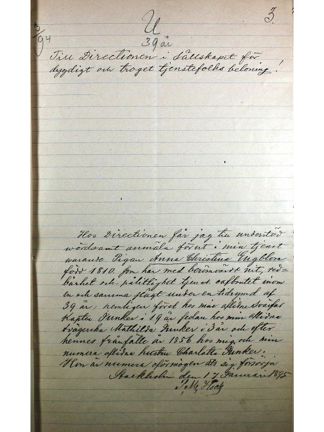 3
U
39 år
Till Directionen i Sällskapet för
dygdigt och troget tjenstefolks belöning!
Hos Directionen får jag
wördsamt anmäla förut i min tjenst
warande Pigan Anna Christina Englblom
född 1810. hon har med berömvärd nit, red-
barhet och pålitlighet tjent oafbrutet inom
en och samma slägt under en tidrymd af
39 år; nemligen först hos min aflidne Svärfar
Kapten Junker i 19 år sedan hos min
Svägerska Mathilda Junker i år och efter
hennes frånfälle år 1856 hos mig och min
numera aflidna hustru Charlotte Junker.
Hon är numera oförmögen att sig försörja
Stockholm den 17 Januari 1895